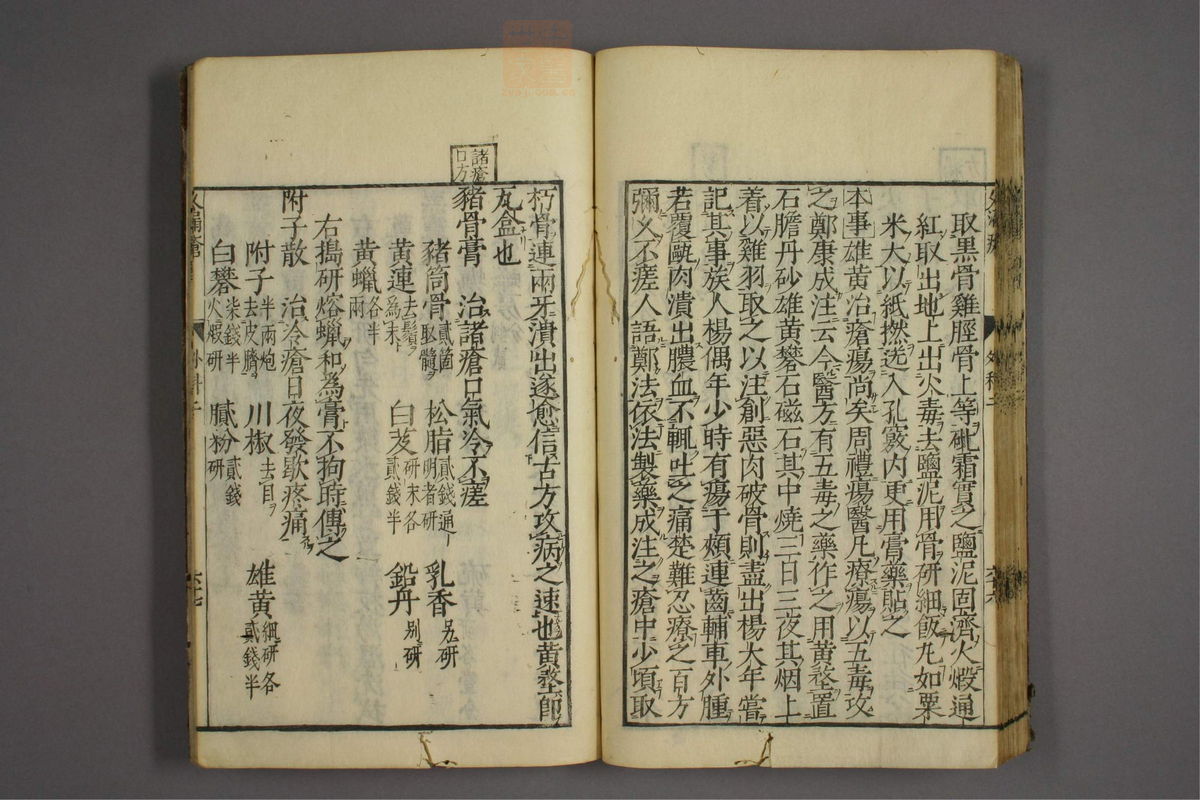 取黑骨雞脛骨上等砒霜實之鹽泥固濟火煅通
紅取出地上出火毒去鹽泥用骨研細飯丸如粟
米大以紙撚送入孔竅內更用膏藥貼之
本事雄黃治瘡瘍尚矣周禮瘍醫凡療瘍以五毒攻
之鄭康成注云今醫方有五毒之藥作之用黃堥置
石膽丹砂雄黃礬石磁石其中燒三日三夜其烟上
着以雞羽取之以注創惡肉破骨則盡出楊大年嘗
記其事族人楊偶年少時有瘍于頰連齒輔車外腫
若覆甌肉潰出膿血不輒吐之痛楚難忍療之百方
彌久不瘥人語鄭法依法製藥成注之瘡中少頃取
朽骨連兩牙潰出遂愈信古方攻病之速也黃堥即
瓦盒也
諸瘡
口方
豬骨膏 治諸瘡口氣冷不瘥
豬筒骨貳箇取髓 松脂貳錢通明者研 乳香另研
黃連去鬚為末 白芨研末各貳錢半 鉛丹別研
黃蠟各半兩
右搗研熔蠟和為膏不拘時傅之
附子散 治冷瘡日夜發歇疼痛
附子半兩炮去皮臍 川椒去目 雄黃細研各貳錢半
白礬柒錢半火煆研 膩粉貳錢研
外科二
六十六
六十七